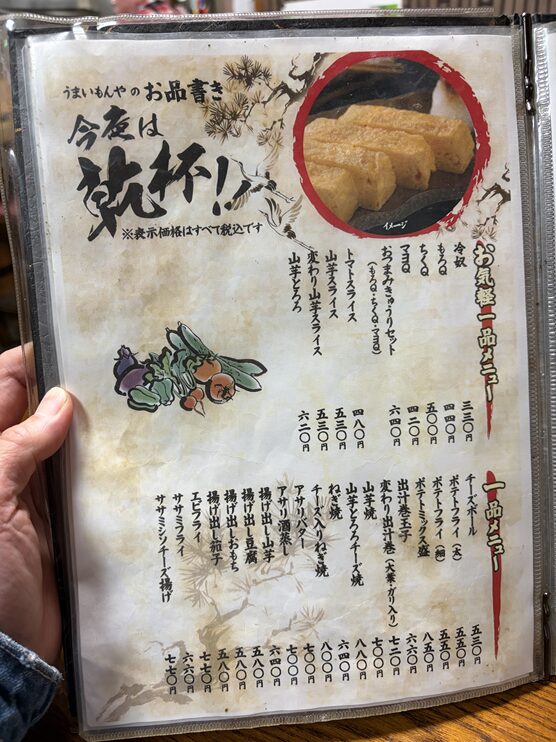 うまいもんや の お品書き
今夜は
乾杯!!
※表示価格はすべて税込です
イメージ
お気軽一品メニュー
冷奴 三三〇円
もろQ 四四〇円
ちくQ 五〇〇円
マヨQ 四二〇円
おつまみきゅうりセット
(もろQ・ちくQ・マヨQ) 六四〇円
トマトスライス 四八〇円
山芋スライス 五三〇円
変わり山芋スライス 五三〇円
山芋とろろ 六二〇円
一品メニュー
チーズボール 五三〇円
ポテトフライ(太) 五五〇円
ポテトフライ(細) 五五〇円
ポテトミックス盛 八五〇円
出汁巻玉子 六六〇円
変わり出汁巻(大葉・ガリ入り) 七二〇円
山芋焼 七〇〇円
山芋とろろチーズ焼 八八〇円
ねぎ焼 六四〇円
チーズ入りねぎ焼 八〇〇円
アサリバター 七〇〇円
アサリ酒蒸し 七〇〇円
揚げ出し山芋 六四〇円
揚げ出し豆腐 五八〇円
揚げ出しおもち 五八〇円
揚げ出し茄子 五八〇円
エビフライ 七七〇円
ササミフライ 六六〇円
ササミシソチーズ揚げ 七七〇円